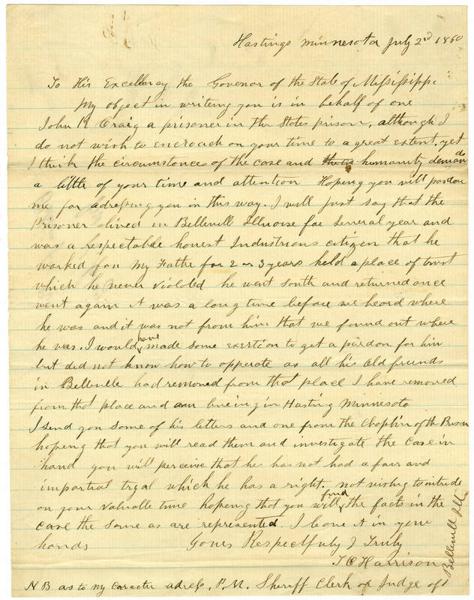 Hastings Minnesota July 2nd 1860
To His Excellency the Govenor of the State of Mississippi
My object in writing you is in behalf of one
John R Craig a prisoner in the State prison, although I
do not wish to encroach on your time to a great extent, yet
I think the circumstances of the case and humanity demands
a little of your time and attention Hoping you will pardon
me for adressing you in this way. I will just say that the
Prisoner lived in Bellevill Illinoise for several years and
was a respectable honest Industrious citizen that he
worked for my Father for 2 or 3 years held a place of trust
which he never violated he went South and returned once
went again it was a long time before we heard where
he was and it was not from him that we found out where
he was. I would have made some exertion to get a pardon for him
but did not know how to opperate as all his old friends
in Belleville had removed from that place I have removed
from that place and am liveing in Hasting Minnesota
I send you some of his letters and one from the Chaplin of the Prison
hoping that you will read them and investigate the Case in
hand you will perceive that he has not had a fair and
impartial tryal which he has a right. not wishing to intrude
on your valuable time hoping that you will find the facts in the
case the same as are represented. I leave it in your
hands Yours Respectfuly & Truly
T C Harrison
N B as to my caracter adress, P. M. Sheriff Clerk or Judge of
Bellevill Ills